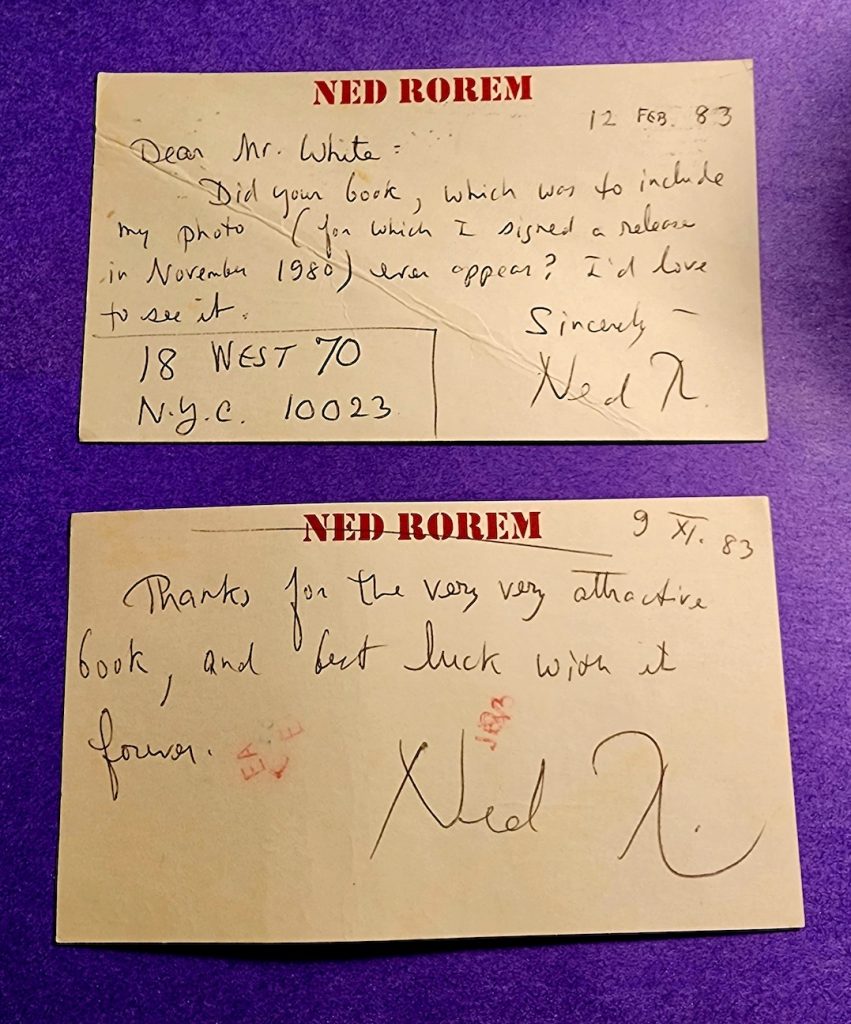 NED ROREM
12 FEB. 83
Dear Mr. White:
Did your book, which was to include
my photo (for which I signed a release
in November 1980) ever appear? I'd love
to see it.
Sincerely –
Ned R.
18 WEST 70
N.Y.C. 10023
NED ROREM
9 XI. 83
Thanks for the very very attractive
book, and best luck with it
forever.
Ned R.